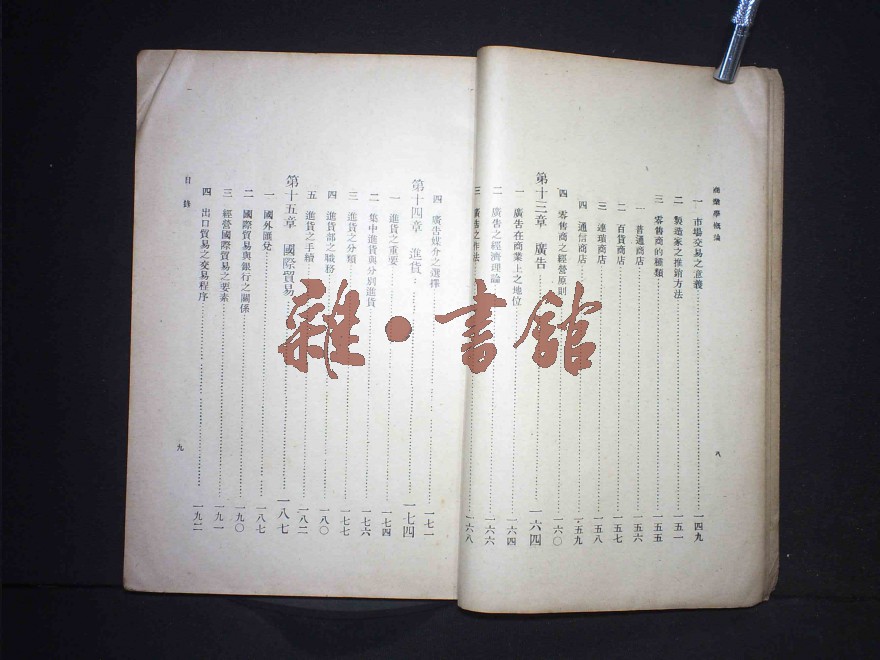 商業學概論
一 市場交易之意義 一四九
二 製造家之推銷方法 一五一
三 零售商的種類 一五五
一 普通商店 一五六
二 百貨商店 一五七
三 連瑣商店 一五八
四 通信商店 一五九
四 零售商之經營原則 一六〇
第十三章 廣告 一六四
一 廣告在商業上之地位 一六四
二 廣告之經濟理論 一六六
三 廣告之作法 一六八
八
四 廣告媒介之選擇 一七一
第十四章 進貨 一七四
一 進貨之重要 一七四
二 集中進貨與分別進貨 一七六
三 進貨之分類 一七七
四 進貨部之職務 一八〇
五 進貨之手續 一八二
第十五章 國際貿易 一八七
一 國外匯兌 一八七
二 國際貿易與銀行之關係 一九〇
三 經營國際貿易之要素 一九一
四 出口貿易之交易程序 一九二
目錄
九
雜·書館